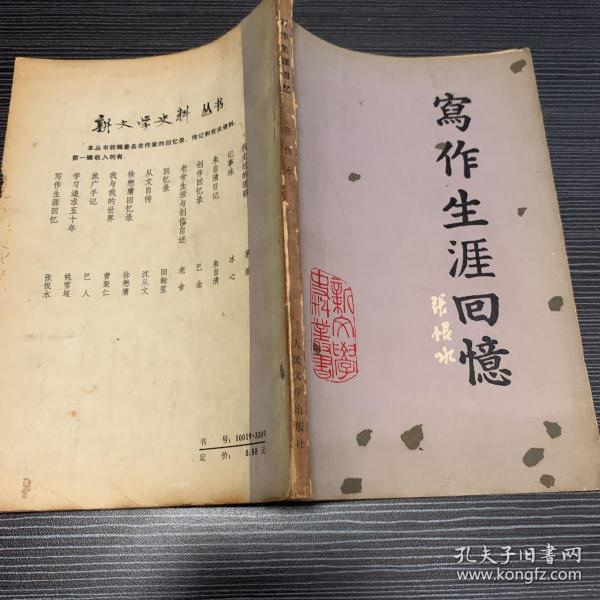 寫作生涯回憶
張恨水
新文學
史料叢書
写作生涯回忆
人民文学出版社
新文学史料 丛书
本丛书收辑著名老作家的回忆录、传记和有关资料。
第一辑收入的有:
记事珠 冰心
朱自清日记 朱自清
创作回忆录 巴金
老舍生活与创作自述 老舍
回忆录 阳翰笙
从文自传 沈从文
徐懋庸回忆录 徐懋庸
我与我的世界 曹聚仁
旅广手记 巴人
学习追求五十年 姚雪垠
写作生涯回忆 张恨水
书 号:10019·3309
定 价: 0.58 元
孔夫子旧书网
www.kongfz.com